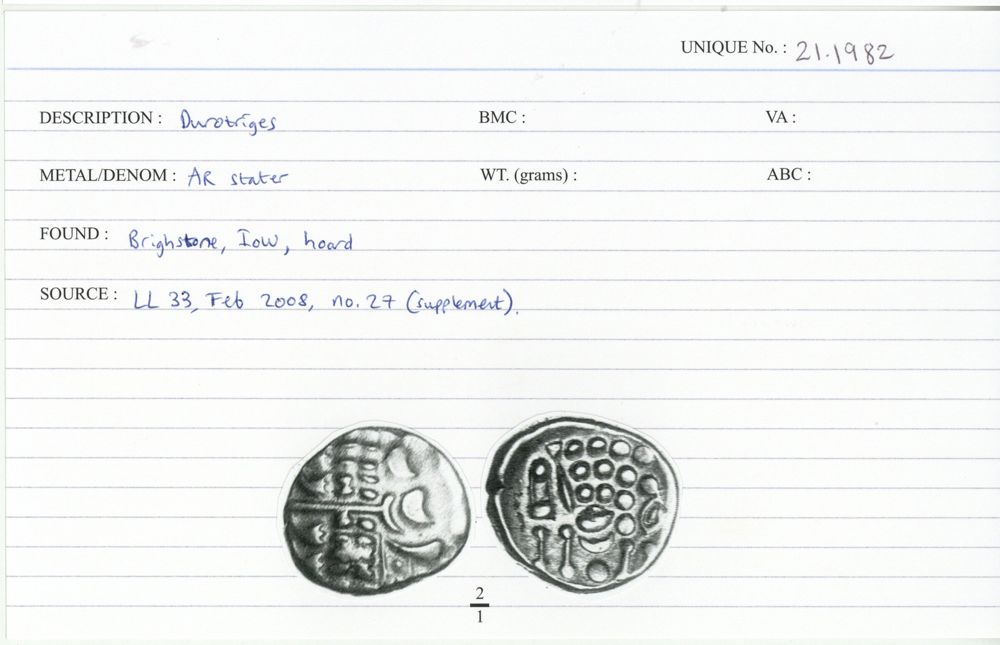 UNIQUE No. : 21.1982
DESCRIPTION : Durotriges BMC : VA :
METAL/DENOM : AR stater WT. (grams) : ABC :
FOUND : Brighstone, IOW, hoard
SOURCE : LL 33, Feb 2008, no. 27 (supplement).
2
1